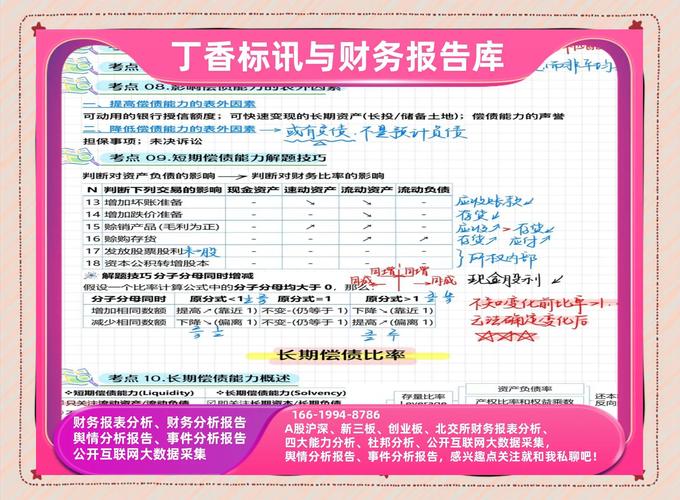 丁香标讯与财务报告库
考点 08.影响偿债能力的表外因素
一、提高偿债能力的表外因素
可动用的银行授信额度；可快速变现的长期资产(长投/储备土地)；偿债能力的声誉
二、降低偿债能力的表外因素 → 或有负债.不是预计负债
担保事项；未决诉讼
考点 09.短期偿债能力解题技巧
判断对资产负债的影响 → 判断对财务比率的影响
N 判断下列交易的影响 现金资产 速动资产 流动资产 流动负债
13 增加坏账准备 - ↘ ↘ - 应收账款↓
14 增加跌价准备 - - ↘ - 存货↓
15 赊销产品(毛利为正) - ↗ ↗ - 应收↗ > 存货↓
16 赊购存货 - - ↗ ↗ 存货↗ 应付↗
17 发放股票股利 - - - -
18 资本公积转增股本 - - - -
所权内部
解题技巧分子分母同时增减
同增 同增
同减 同减
现金股利
假设一个比率计算公式中的分子分母均大于 0，那么：
分子分母同时 原分式<1 原分式=1 原分式>1
增加相同数额 提高↗(靠近 1) 不变-(仍等于 1) 下降↘(靠近 1)
减少相同数额 下降↘(偏离 1) 不变-(仍等于 1) 提高↗(偏离 1)
不知变化前比率
无法确定变化后
☆☆☆☆
长期偿债比率
考点 10.长期偿债能力概述
短期偿债能力(Liquidity) 长期偿债能力(Solvency)
存量比率
资产负债率
产权比率和权益乘数
财务报表分析、财务分析报告
舆情分析报告、事件分析报告
公开互联网大数据采集
166-1994-8786
A股沪深、新三板、创业板、北交所财务报表分析、
四大能力分析、杜邦分析、公开互联网大数据采集，
舆情分析报告、事件分析报告，感兴趣点关注就和我私聊吧！